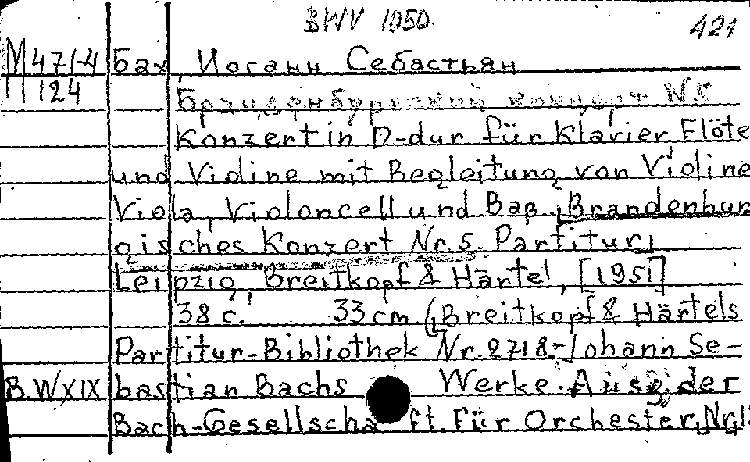 BWV 1050
421
М 471-4 Бах, Иоганн Себастьян
П 124
Бранденбургский концерт №5
Konzert in D-dur für Klavier Flöte
und Violine mit Begleitung von Violine
Viola, Violoncell und Baß. (Brandenbur
gisches Konzert Nr. 5. Partitur,
Leipzig, Breitkopf & Härtel, [1951]
38 с. 33 cm (Breitkopf & Härtels
Partitur-Bibliothek Nr. 2718.- Johann Se-
B.W XIX bastian Bachs Werke. Ausg. der
Bach-Gesellschaft. Für Orchester, Nr.